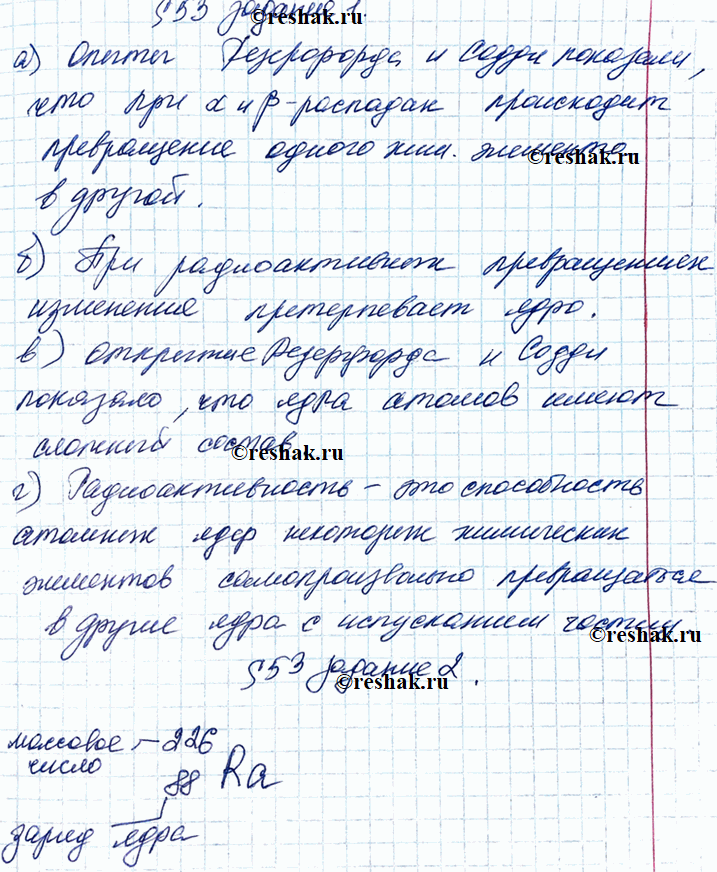 §53 задание 1.
©reshak.ru
а) Опыты Резерфорда и Содди показали,
что при α и β-распадах происходит
превращение одного хим. элемента
©reshak.ru
в другой.
б) При радиоактивных превращениях
изменения претерпевает ядро.
в) Открытие Резерфорда и Содди
показало, что ядра атомов имеют
сложный состав
©reshak.ru
г) Радиоактивность – это способность
атомных ядер некоторых химических
элементов самопроизвольно превращаться
в другие ядра с испусканием частиц.
©reshak.ru
§53 задание 2.
©reshak.ru
массовое – 226
число 88 Ra
заряд ядра